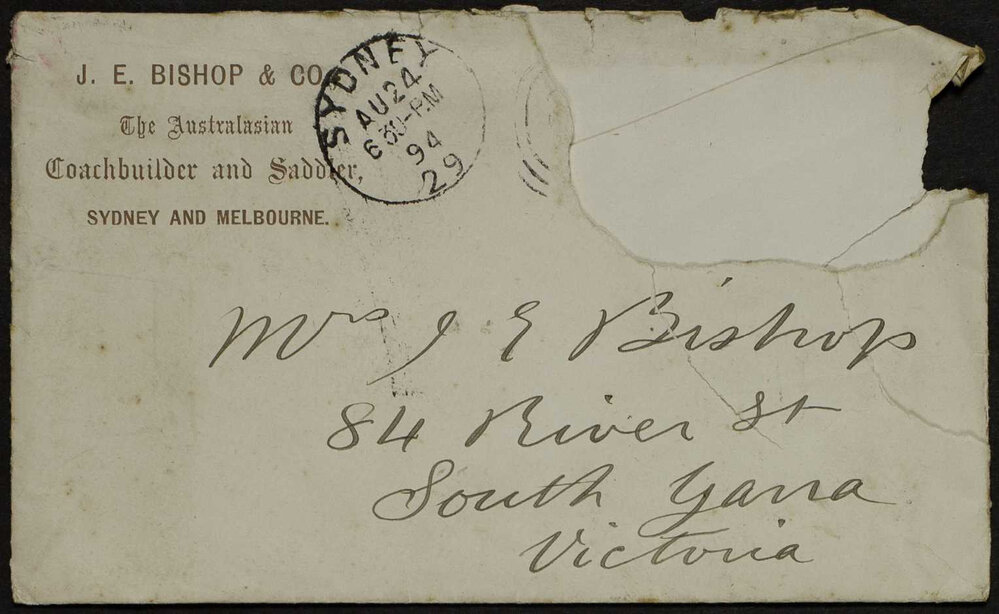 J. E. BISHOP & CO.
The Australasian
Coachbuilder and Saddler,
SYDNEY AND MELBOURNE.
SYDNEY
AU 24
6 30-P.M
94
29
Mrs J E Bishop
84 River St
South Yarra
Victoria